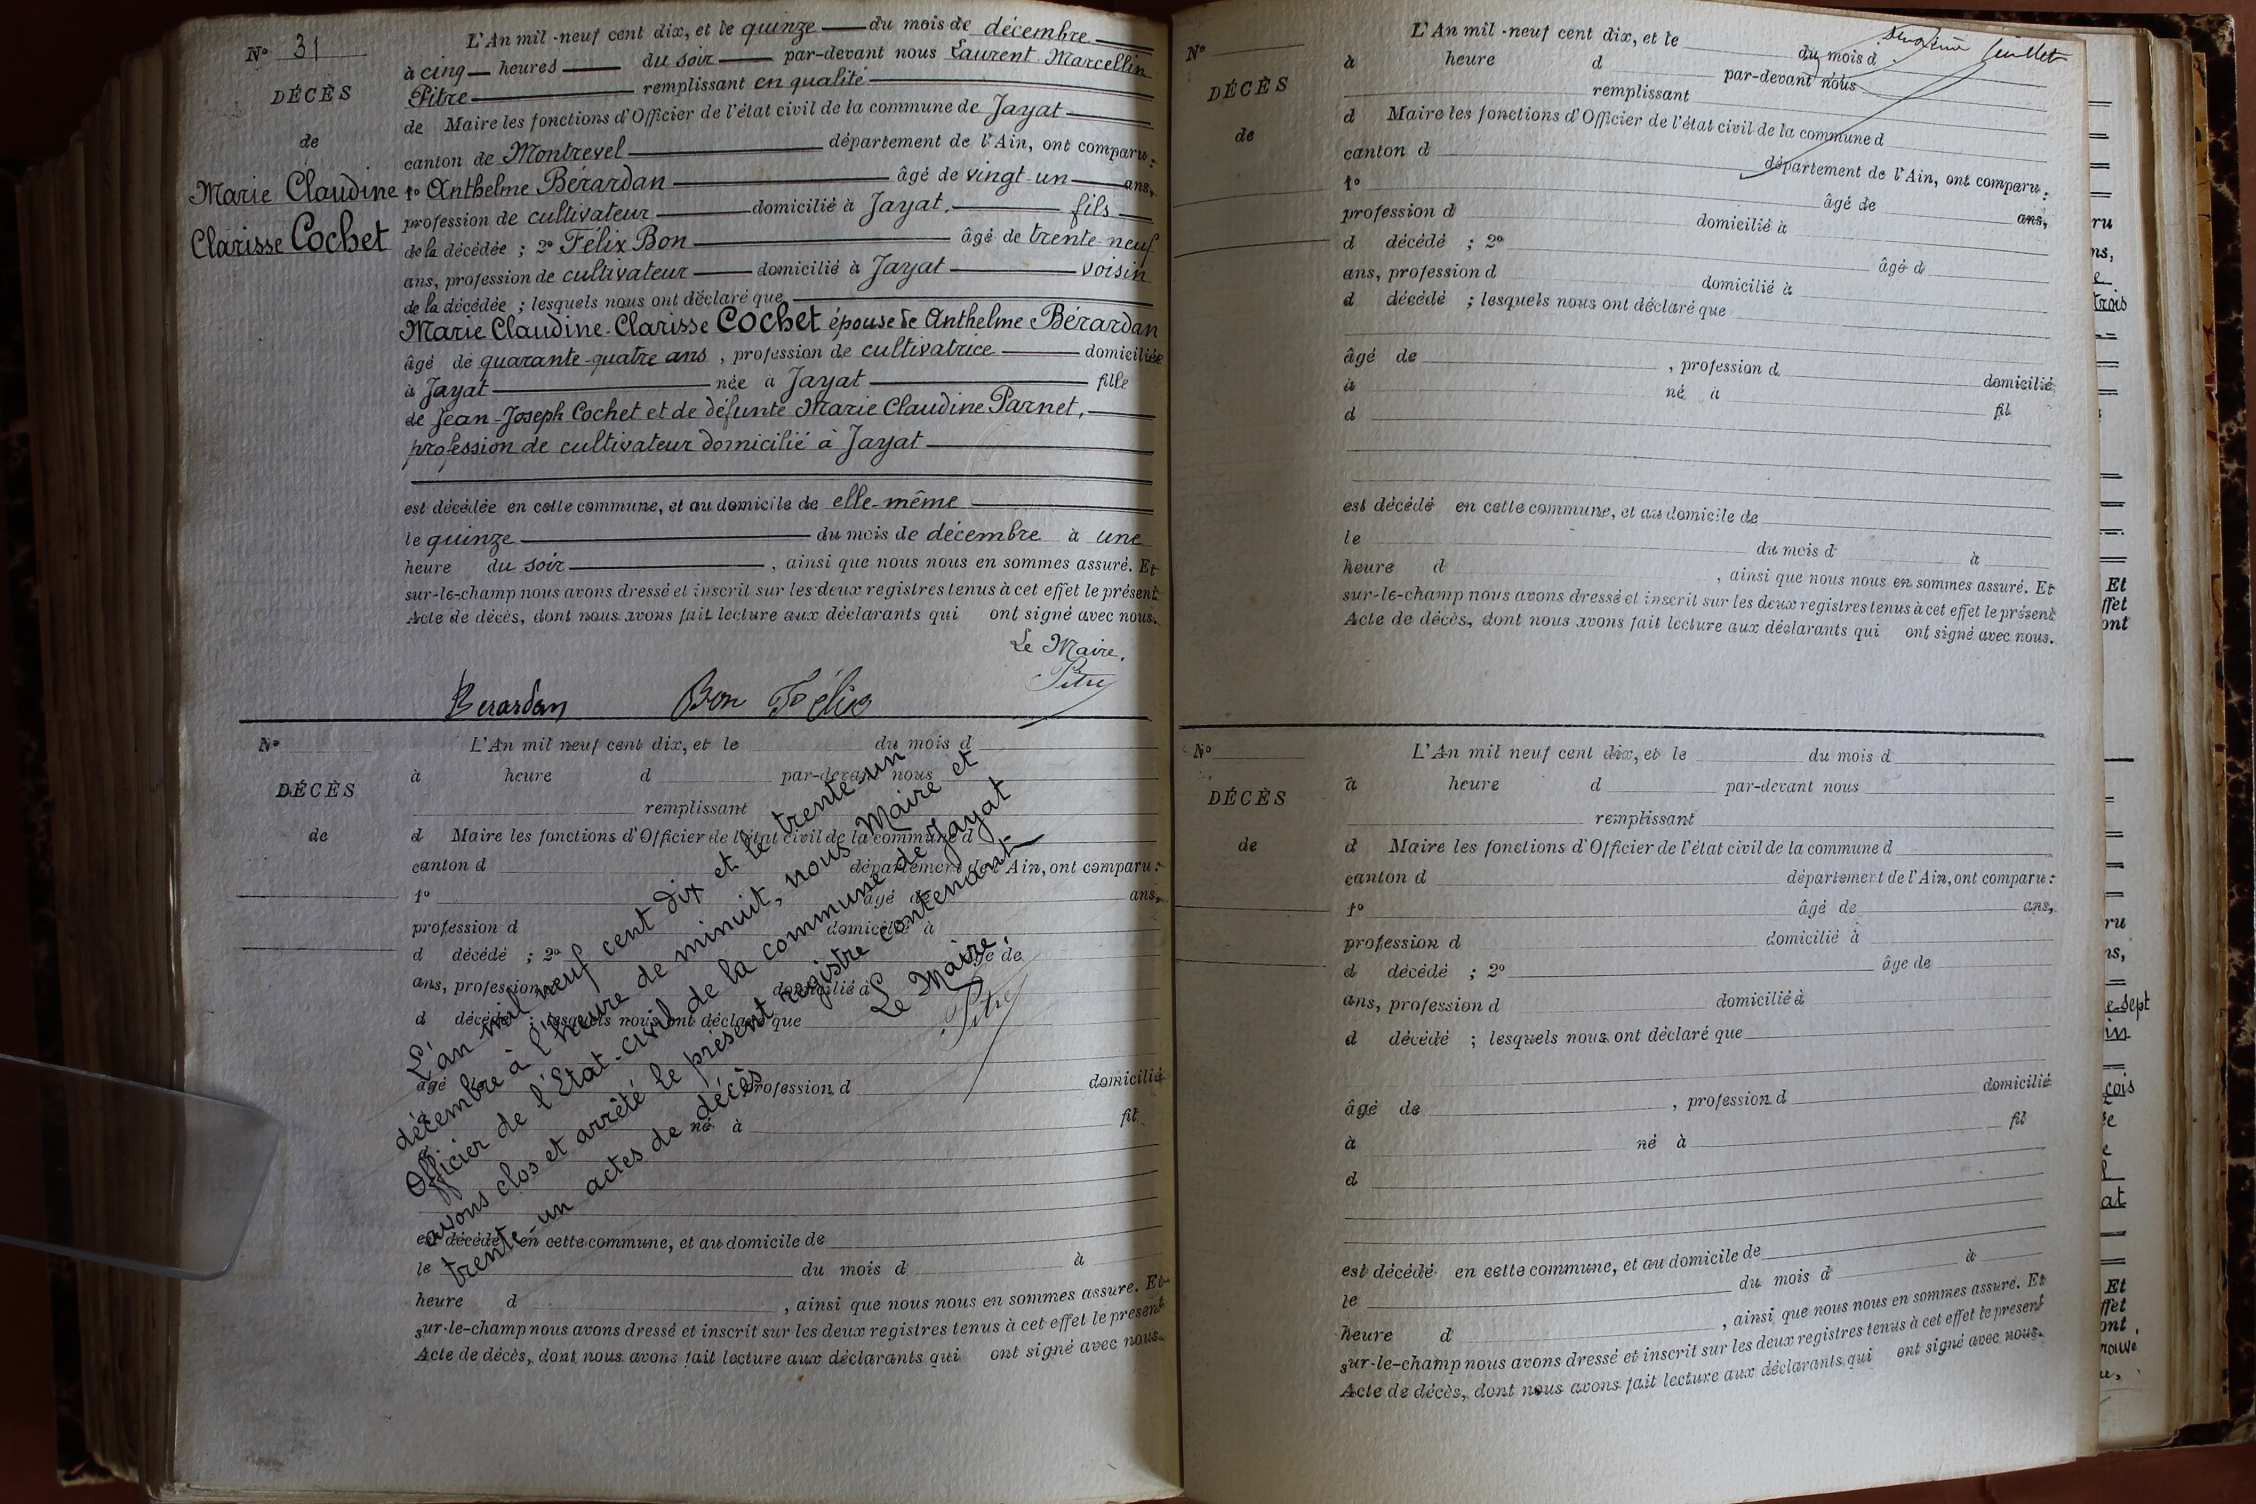 N° 31
DÉCÈS
de
Marie Claudine
Clarisse Cochet
L'An mil-neuf cent dix, et le quinze du mois de décembre
à cinq heures du soir par-devant nous Laurent Marcellin
Pitre remplissant en qualité
de Maire les fonctions d'Officier de l'état civil de la commune de Jayat
canton de Montrevel département de l'Ain, ont comparu :
1° Anthelme Bérardan âgé de vingt-un ans,
profession de cultivateur domicilié à Jayat, fils
de la décédée ; 2° Félix Bon âgé de trente-neuf
ans, profession de cultivateur domicilié à Jayat voisin
de la décédée ; lesquels nous ont déclaré que
Marie Claudine-Clarisse Cochet épouse de Anthelme Bérardan
âgé de quarante-quatre ans, profession de cultivatrice domiciliée
à Jayat née à Jayat fille
de Jean-Joseph Cochet et de défunte Marie Claudine Parnet,
profession de cultivateur domicilié à Jayat
est décédée en cette commune, et au domicile de elle-même
le quinze du mois de décembre à une
heure du soir, ainsi que nous nous en sommes assuré. Et
sur-le-champ nous avons dressé et inscrit sur les deux registres tenus à cet effet le présent
Acte de décès, dont nous avons fait lecture aux déclarants qui ont signé avec nous.
Le Maire,
Pitre
Berardan Bon Félix
N°
DÉCÈS
de
L'An mil neuf cent dix, et le du mois d
à heure d par-devant nous
remplissant
d Maire les fonctions d'Officier de l'état civil de la commune d
canton d département de l'Ain, ont comparu :
1° âgé de ans,
profession d domicilié à
d décédé ; 2° âgé de
ans, profession d domicilié à
d décédé ; lesquels nous ont déclaré que
âgé de , profession d domicilié
à né à fil
d
est décédé en cette commune, et au domicile de
le du mois d à
heure d , ainsi que nous nous en sommes assuré. Et
sur-le-champ nous avons dressé et inscrit sur les deux registres tenus à cet effet le présent
Acte de décès, dont nous avons fait lecture aux déclarants qui ont signé avec nous.
L'an mil neuf cent dix et le trente-un
décembre à l'heure de minuit, nous Maire et
Officier de l'Etat-civil de la commune de Jayat
avons clos et arrêté le présent registre contenant
trente-un actes de décès
Le Maire,
Pitre
N°
DÉCÈS
de
feuillet
L'An mil-neuf cent dix, et le du mois d
à heure d par-devant nous
remplissant
d Maire les fonctions d'Officier de l'état civil de la commune d
canton d département de l'Ain, ont comparu :
1° âgé de ans,
profession d domicilié à
d décédé ; 2° âgé d
ans, profession d domicilié à
d décédé ; lesquels nous ont déclaré que
âgé de , profession d domicilié
à né à
d fil
est décédé en cette commune, et au domicile de
le du mois d à
heure d , ainsi que nous nous en sommes assuré. Et
sur-le-champ nous avons dressé et inscrit sur les deux registres tenus à cet effet le présent
Acte de décès, dont nous avons fait lecture aux déclarants qui ont signé avec nous.
N°
DÉCÈS
de
L'An mil neuf cent dix, et le du mois d
à heure d par-devant nous
remplissant
d Maire les fonctions d'Officier de l'état civil de la commune d
canton d département de l'Ain, ont comparu :
1° âgé de ans,
profession d domicilié à
d décédé ; 2° âge de
ans, profession d domicilié à
d décédé ; lesquels nous ont déclaré que
âgé de , profession d domicilié
à né à fil
d
est décédé en cette commune, et au domicile de
le du mois d à
heure d , ainsi que nous nous en sommes assuré. Et
sur-le-champ nous avons dressé et inscrit sur les deux registres tenus à cet effet le présent
Acte de décès, dont nous avons fait lecture aux déclarants qui ont signé avec nous.
ru
ns,
trois
Et
ffet
ont
ru
ns,
e-sept
in
çois
at
Et
ffet
ont